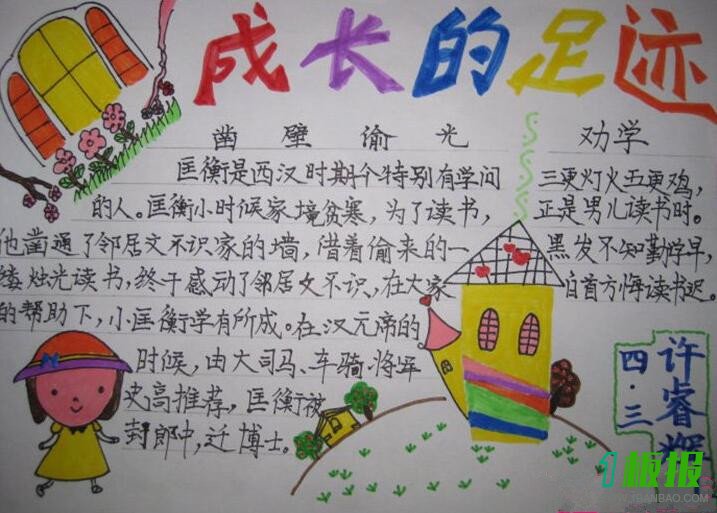 成长的足迹
凿壁偷光
匡衡是西汉时期个特别有学问
的人。匡衡小时候家境贫寒，为了读书，
他凿通了邻居文不识家的墙，借着偷来的一
缕烛光读书，终于感动了邻居文不识，在大家
的帮助下，小匡衡学有所成。在汉元帝的
时候，由大司马、车骑·将军
史高推荐，匡衡被
封郎中，迁博士。
劝学
三更灯火五更鸡，
正是男儿读书时。
黑发不知勤学早，
白首方悔读书迟。
四·三
许睿
1板报
WWW.1BANBAO.COM